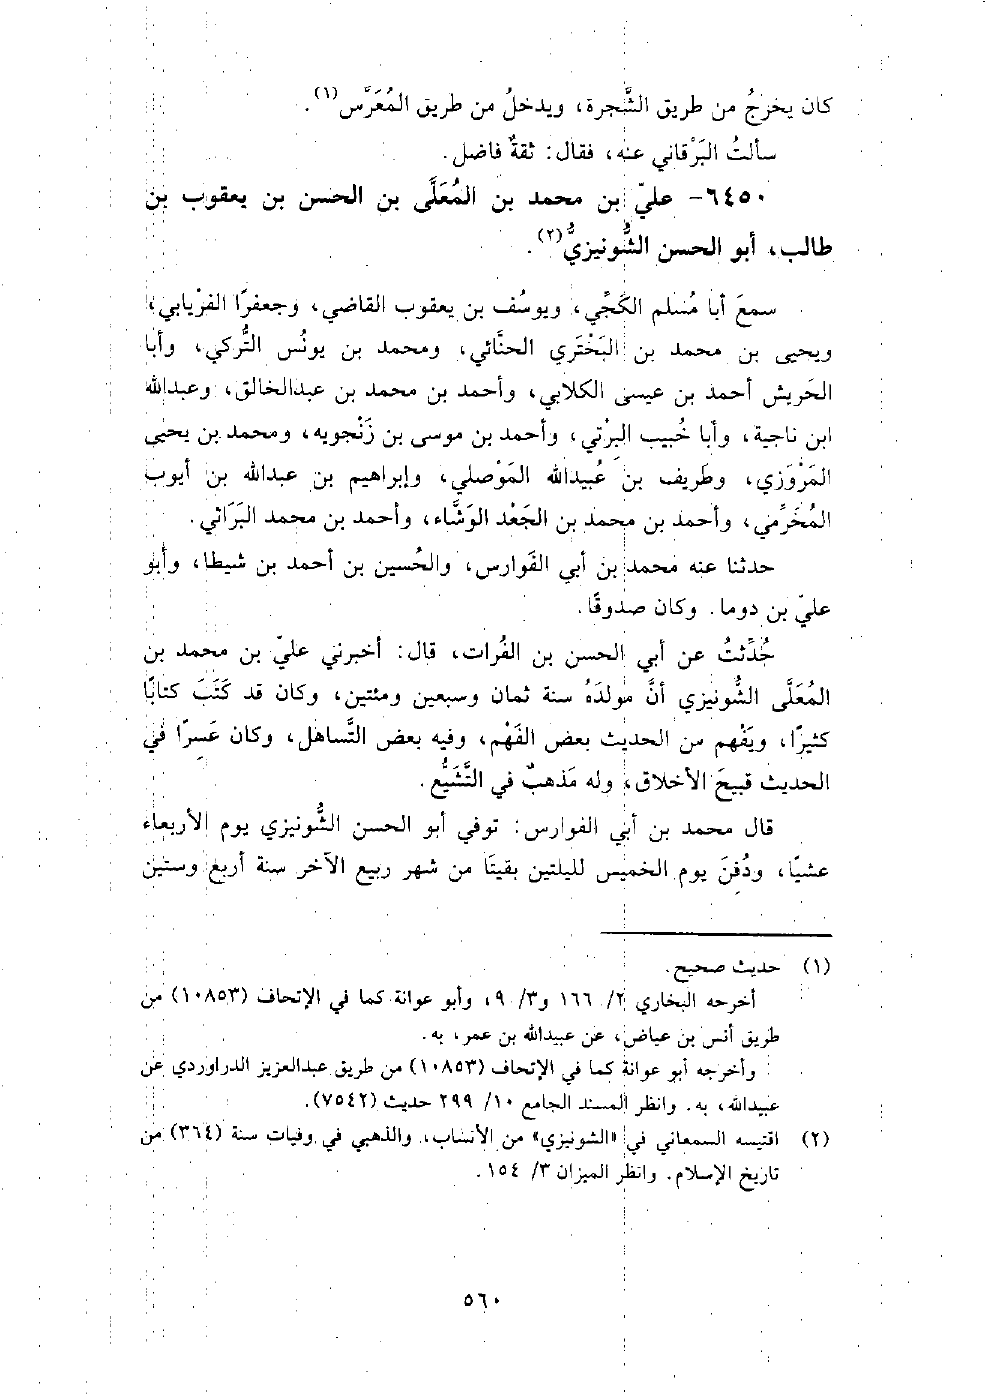 كان يخرجُ من طريق الشَّجرة، ويدخلُ من طريق المُعَرَّس(١).
سألتُ البَرْقاني عنه، فقال: ثقةٌ فاضل.
٦٤٥٠- عليّ بن محمد بن المُعَلَّى بن الحسن بن يعقوب بن
طالب، أبو الحسن الشُّونيزيُّ(٢).
سمعَ أبا مُسلم الكَجِّي، ويوسُف بن يعقوب القاضي، وجعفرًا الفِرْيابي،
ويحيى بن محمد بن البَخْتَري الحنَّائي، ومحمد بن يونُس التُّركي، وأبا
الحَريش أحمد بن عيسى الكلابي، وأحمد بن محمد بن عبدالخالق، وعبدالله
ابن ناجية، وأبا خُبيب البِرْتي، وأحمد بن موسى بن زَنْجويه، ومحمد بن يحيى
المَرْوَزي، وطَريف بن عُبيدالله المَوْصلي، وإبراهيم بن عبدالله بن أيوب
المُخَرِّمي، وأحمد بن محمد بن الجَعْد الوَشَّاء، وأحمد بن محمد البَرَاثي.
حدثنا عنه محمد بن أبي الفَوارس، والحُسين بن أحمد بن شيطا، وأبو
عليّ بن دوما. وكان صدوقًا.
حُدِّثتُ عن أبي الحسن بن الفُرات، قال: أخبرني عليّ بن محمد بن
المُعَلَّى الشُّونيزي أنَّ مولدَهُ سنة ثمان وسبعين ومئتين، وكان قد كَتَبَ كتابًا
كثيرًا، ويَفْهم من الحديث بعض الفَهْم، وفيه بعض التَّساهل، وكان عَسِرًا في
الحديث قبيحَ الأخلاق، وله مَذهبٌ في التَّشَيُّع.
قال محمد بن أبي الفوارس: توفي أبو الحسن الشُّونيزي يوم الأربعاء
عشيًا، ودُفِنَ يوم الخميس لليلتين بقيتَا من شهر ربيع الآخر سنة أربع وستين
(١) حديث صحيح.
أخرجه البخاري ٢/ ١٦٦ و٣/ ٩، وأبو عوانة كما في الإتحاف (١٠٨٥٣) من
طريق أنس بن عياض، عن عبيدالله بن عمر، به.
وأخرجه أبو عوانة كما في الإتحاف (١٠٨٥٣) من طريق عبدالعزيز الدراوردي عن
عبيدالله، به. وانظر المسند الجامع ١٠/ ٢٩٩ حديث (٧٥٤٢).
(٢) اقتبسه السمعاني في «الشونيزي» من الأنساب، والذهبي في وفيات سنة (٣٦٤) من
تاريخ الإسلام. وانظر الميزان ٣/ ١٥٤.
٥٦٠